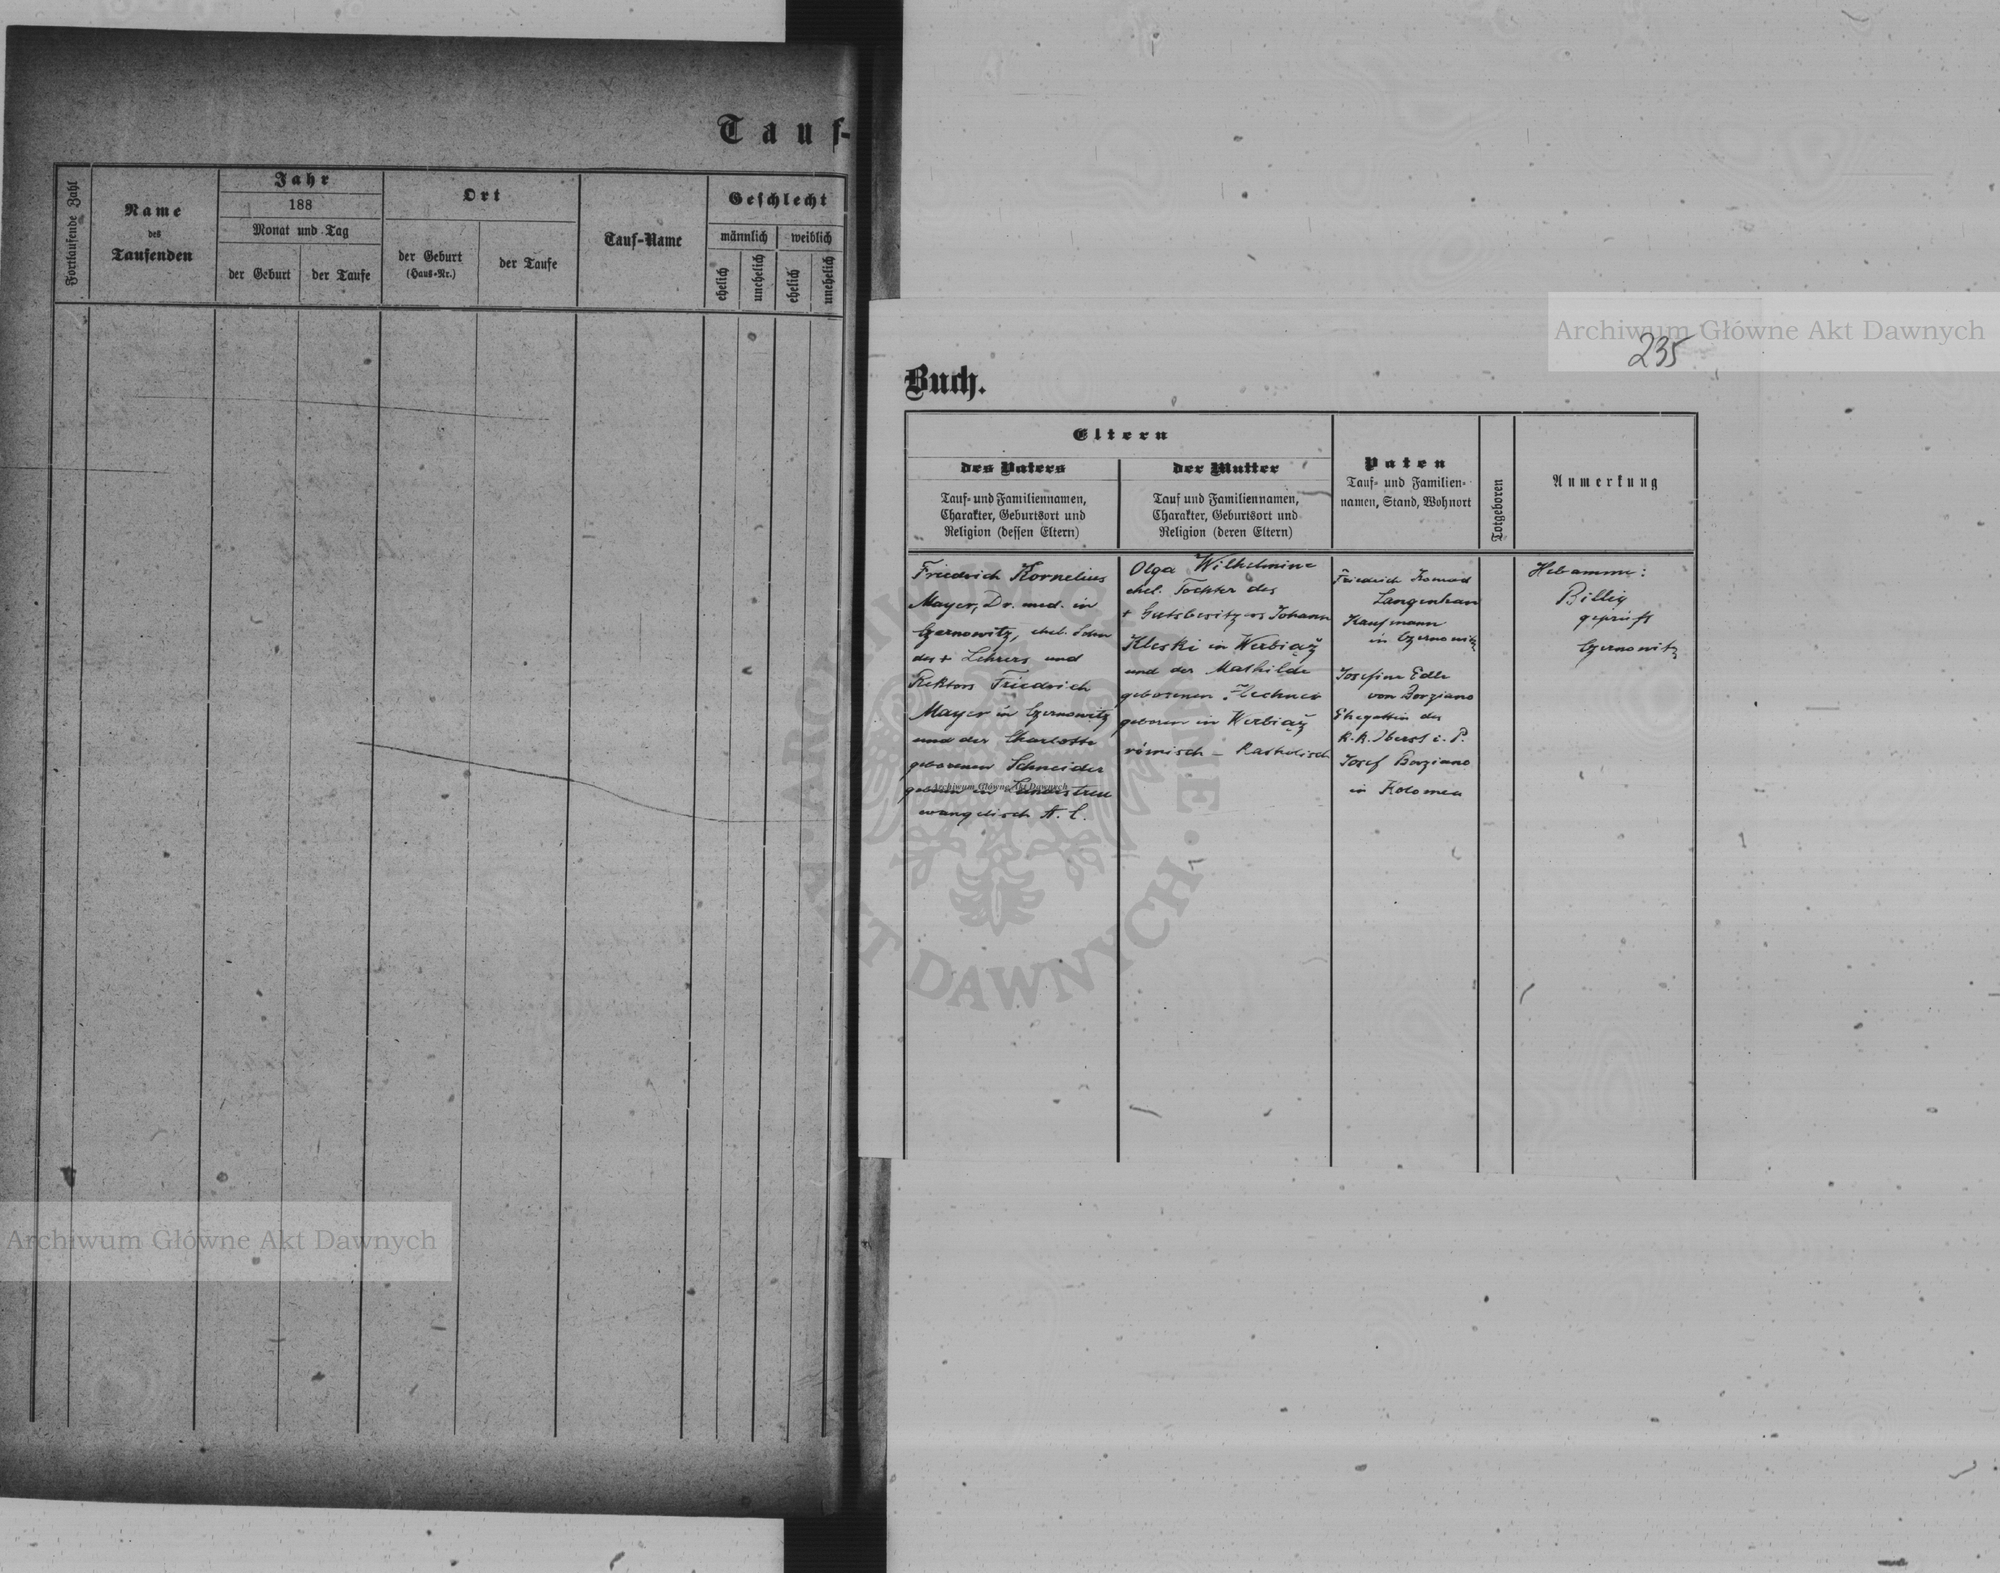 Tauf-
Fortlaufende Zahl
Name
des
Taufenden
Jahr
188
Monat und Tag
der Geburt
der Taufe
Ort
der Geburt
(Haus-Nr.)
der Taufe
Tauf-Name
Geschlecht
männlich
weiblich
ehelich
unehelich
ehelich
unehelich
Archiwum Główne Akt Dawnych
Archiwum Główne Akt Dawnych
235
Buch.
Eltern
des Vaters
Tauf- und Familiennamen,
Charakter, Geburtsort und
Religion (dessen Eltern)
der Mutter
Tauf und Familiennamen,
Charakter, Geburtsort und
Religion (deren Eltern)
Paten
Tauf- und Familien-
namen, Stand, Wohnort
Totgeboren
Anmerkung
Friedrich Kornelius
Mayer, Dr. med. in
Czernowitz, ehel. Sohn
des + Lehrers und
Rektors Friedrich
Mayer in Czernowitz
und der Charlotte
geborenen Schneider
geboren in
evangelisch A. C.
Archiwum Główne Akt Dawnych
Olga Wilhelmine
ehel. Tochter des
+ Gutsbesitzers Johann
Kleski in Werbiąż
und der Mathilde
geborenen
geboren in Werbiąż
römisch - katholisch
Friedrich Konrad
Langenhan
Kaufmann
in Czernowitz
Josefine Edle
von Borziano
Ehegattin des
k. k. Oberst i. P.
Josef Borziano
in Kolomea
Hebamme:
Billig
geprüft
Czernowitz
ARCHIWUM GŁÓWNE
AKT DAWNYCH